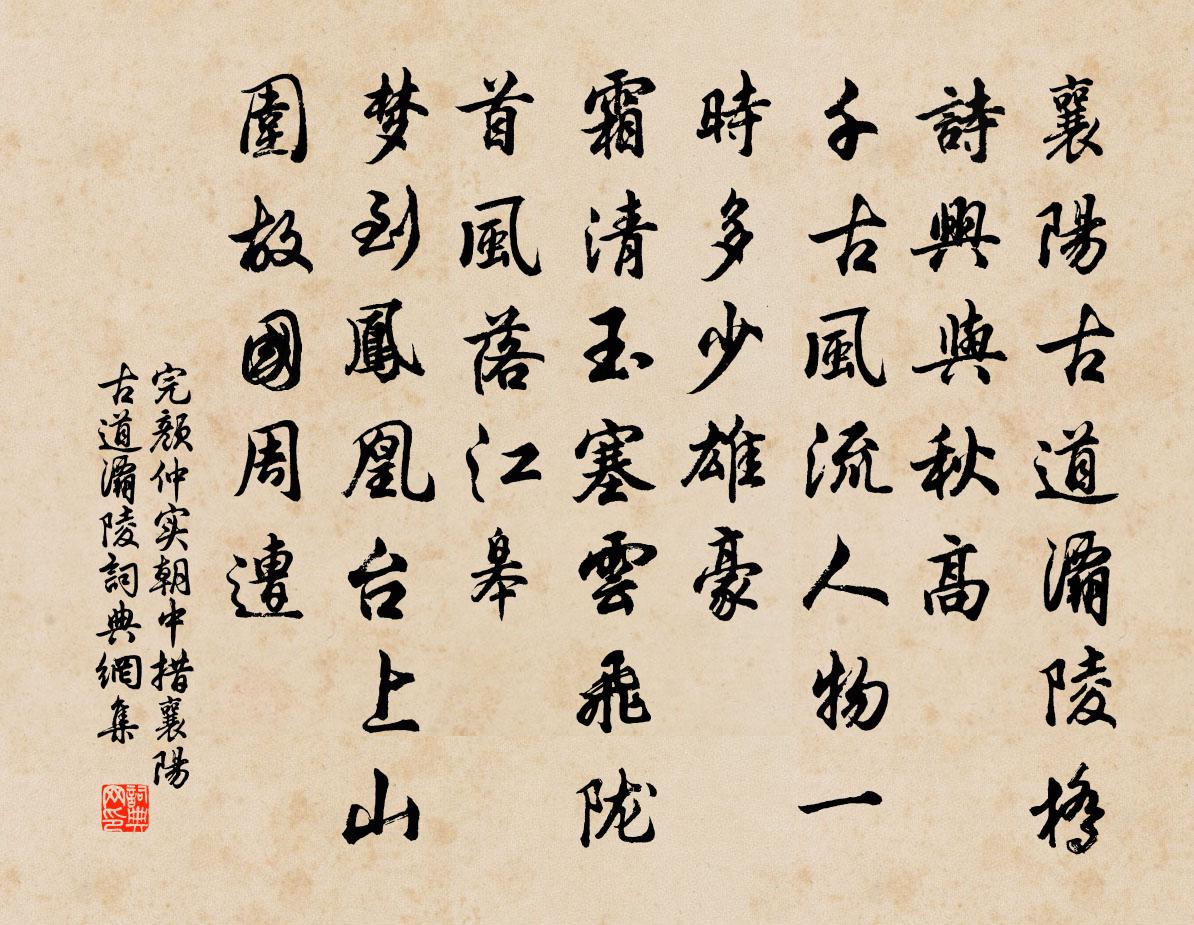 襄陽古道灞陵橋
詩興與秋高
千古風流人物一
時多少雄豪
霜清玉塞雲飛陇
首風落江皋
梦到鳳凰台上山
圍故國周遭
完顏仲实朝中措襄陽
古道灞陵詞典網集
詞典
网印